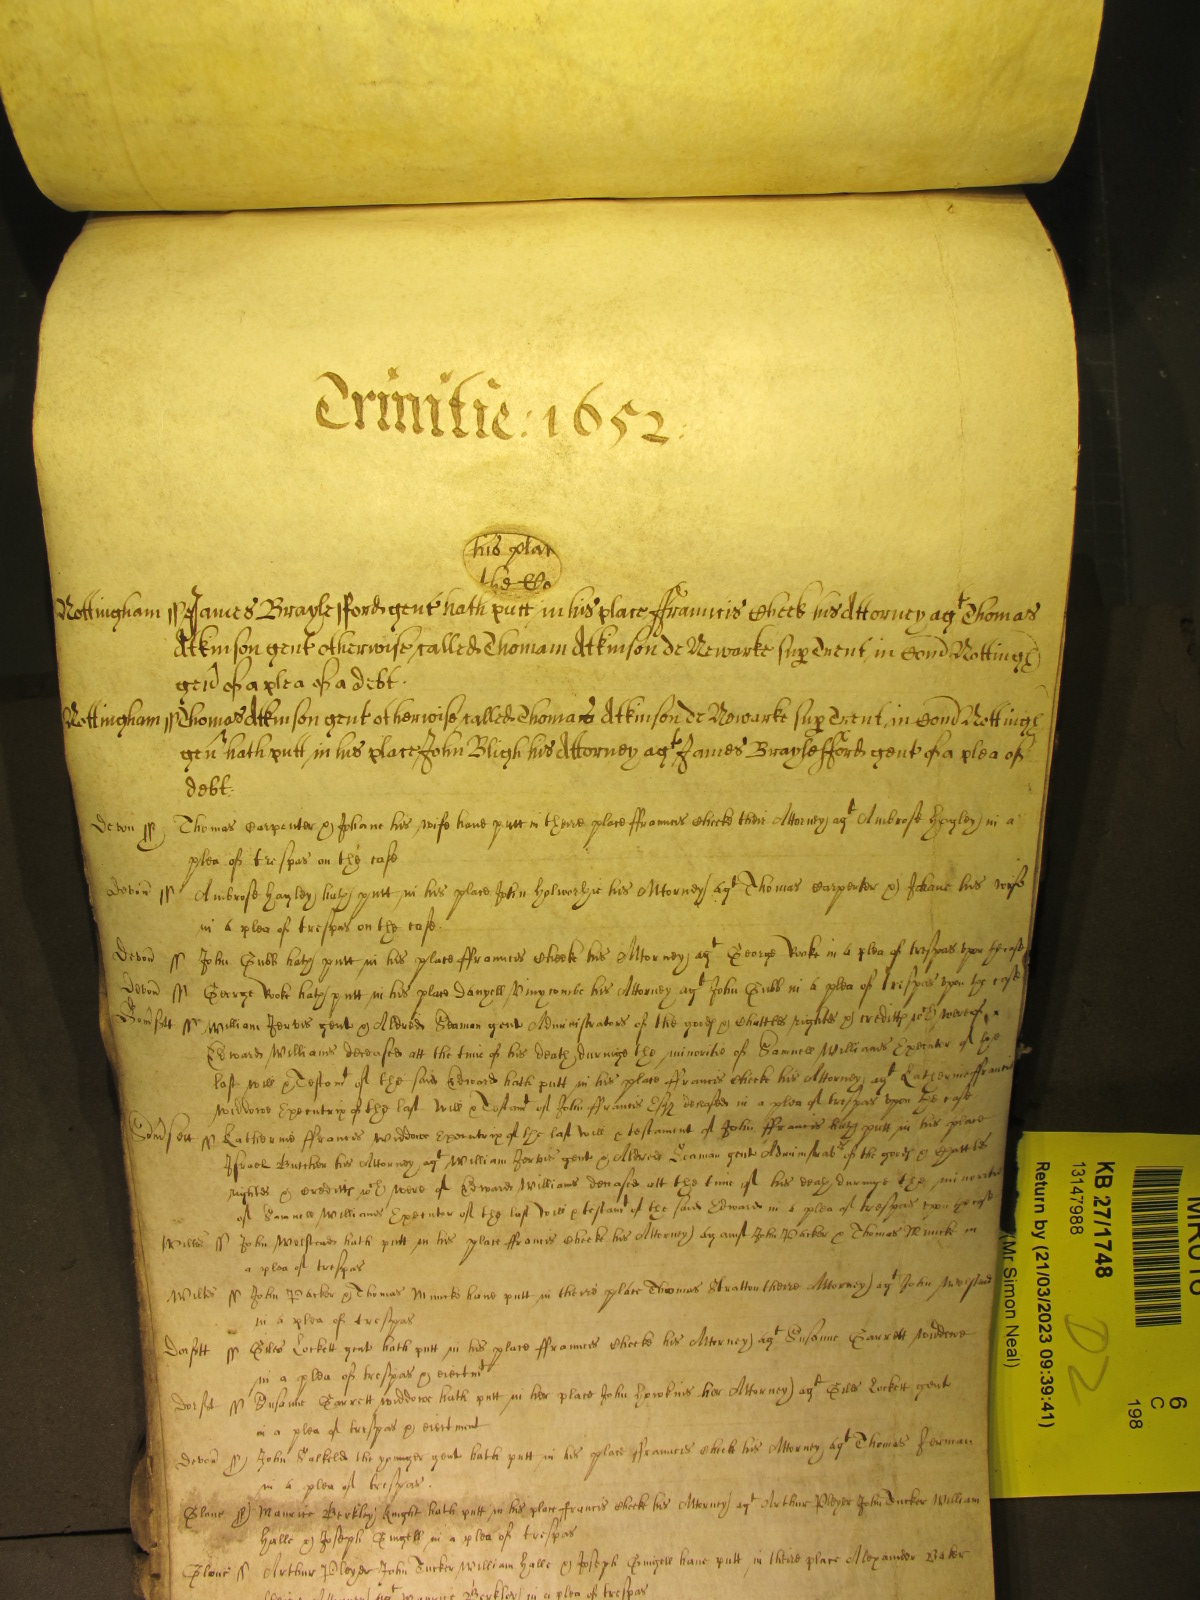 Trinitie : 1652 :
his plac
the Co
Nottingham ss James Braylesfford gent hath putt in his place ffrauncis Cheek his Attorney agt Thomas
Atkinson gent otherwise called Thomam Atkinson de Newarke sup Trent in Com Nottingh
gen of a plea of a debt.
Nottingham ss Thomas Atkinson gent otherwise called Thomas Atkinson de Newarke sup Trent in Com Nottingh
gen hath putt in his place John Bligh his Attorney agt James Braylesfford gent of a plea of
debt.
Devon ss Thomas Carpenter & Johane his wife have putt in theire place ffrauncis Cheeke their Attorney agt Ambrose Hayley in a
plea of trespas on the case
Devon ss Ambrose Hayley hath putt in his place John Holworthie his Attorney agt Thomas Carpenter & Johane his wife
in a plea of trespas on the case.
Devon ss John Gubb hath putt in his place ffrauncis Cheeke his Attorney agt George Rooke in a plea of trespas upon the case
Devon ss George Rooke hath putt in his place Danyell Vinycombe his Attorney agt John Gubb in a plea of trespas upon the case
Somsett ss William Jervis gent & Aldred Seaman gent Administrators of the goods & Chattles rights & creditts wch were of
Edward Williams deceased att the time of his death duringe the minoritie of Samuell Williams Executer of the
last will & Testamt of the said Edward hath putt in his place ffrancis Cheeke his Attorney agt Katherine ffrancis
widdowe Executrix of the last will & Testamt of John ffrancis Esq deceased in a plea of trespas upon the case
Somsett ss Katherine ffrancis widdowe Executrix of the last will & testament of John ffrancis hath putt in his place
Israel Butcher his Attorney agt William Jervis gent & Aldred Seaman gent Administrats of the goods & Chattles
rights & Creditts wch were of Edward Williams deceased att the time of his death duringe the minoritie
of Samuell Williams Executer of the last will & testamt of the said Edward in a plea of trespas upon the case
Wilts ss John Welstead hath putt in his place ffrancis Cheeke his Attorney against John Packer & Thomas Minicke in
a plea of trespas
Wilts ss John Packer & Thomas Minicke have putt in theire place Thomas Stratton theire Attorney agt John Welstead
in a plea of trespas
Dorsett ss Giles Lockett gent hath putt in his place ffrauncis Cheeke his Attorney agt Susanne Garrett widdowe
in a plea of trespas & eiectmt
Dorset ss Susanne Garrett widdowe hath putt in her place John Hawkins her Attorney agt Giles Lockett gent
in a plea of trespas & eiectment
Devon ss John Salkeld the younger gent hath putt in his place ffrauncis Cheeke his Attorney agt Thomas Jerman
in a plea of trespas.
Glouc ss Maurice Berkley knight hath putt in his place ffrancis Cheeke his Attorney agt Arthur Player John Tucker William
Halle & Joseph Gingell in a plea of trespas
Glouc ss Arthur Player John Tucker William Halle & Joseph Gingell have putt in theire place Alexander Baker
theire Attorney agt Maurice Berkley in a plea of trespas
KB 27/1748
13147988
Return by (21/03/2023 09:39:41)
(Mr Simon Neal)
D2
6
C
198